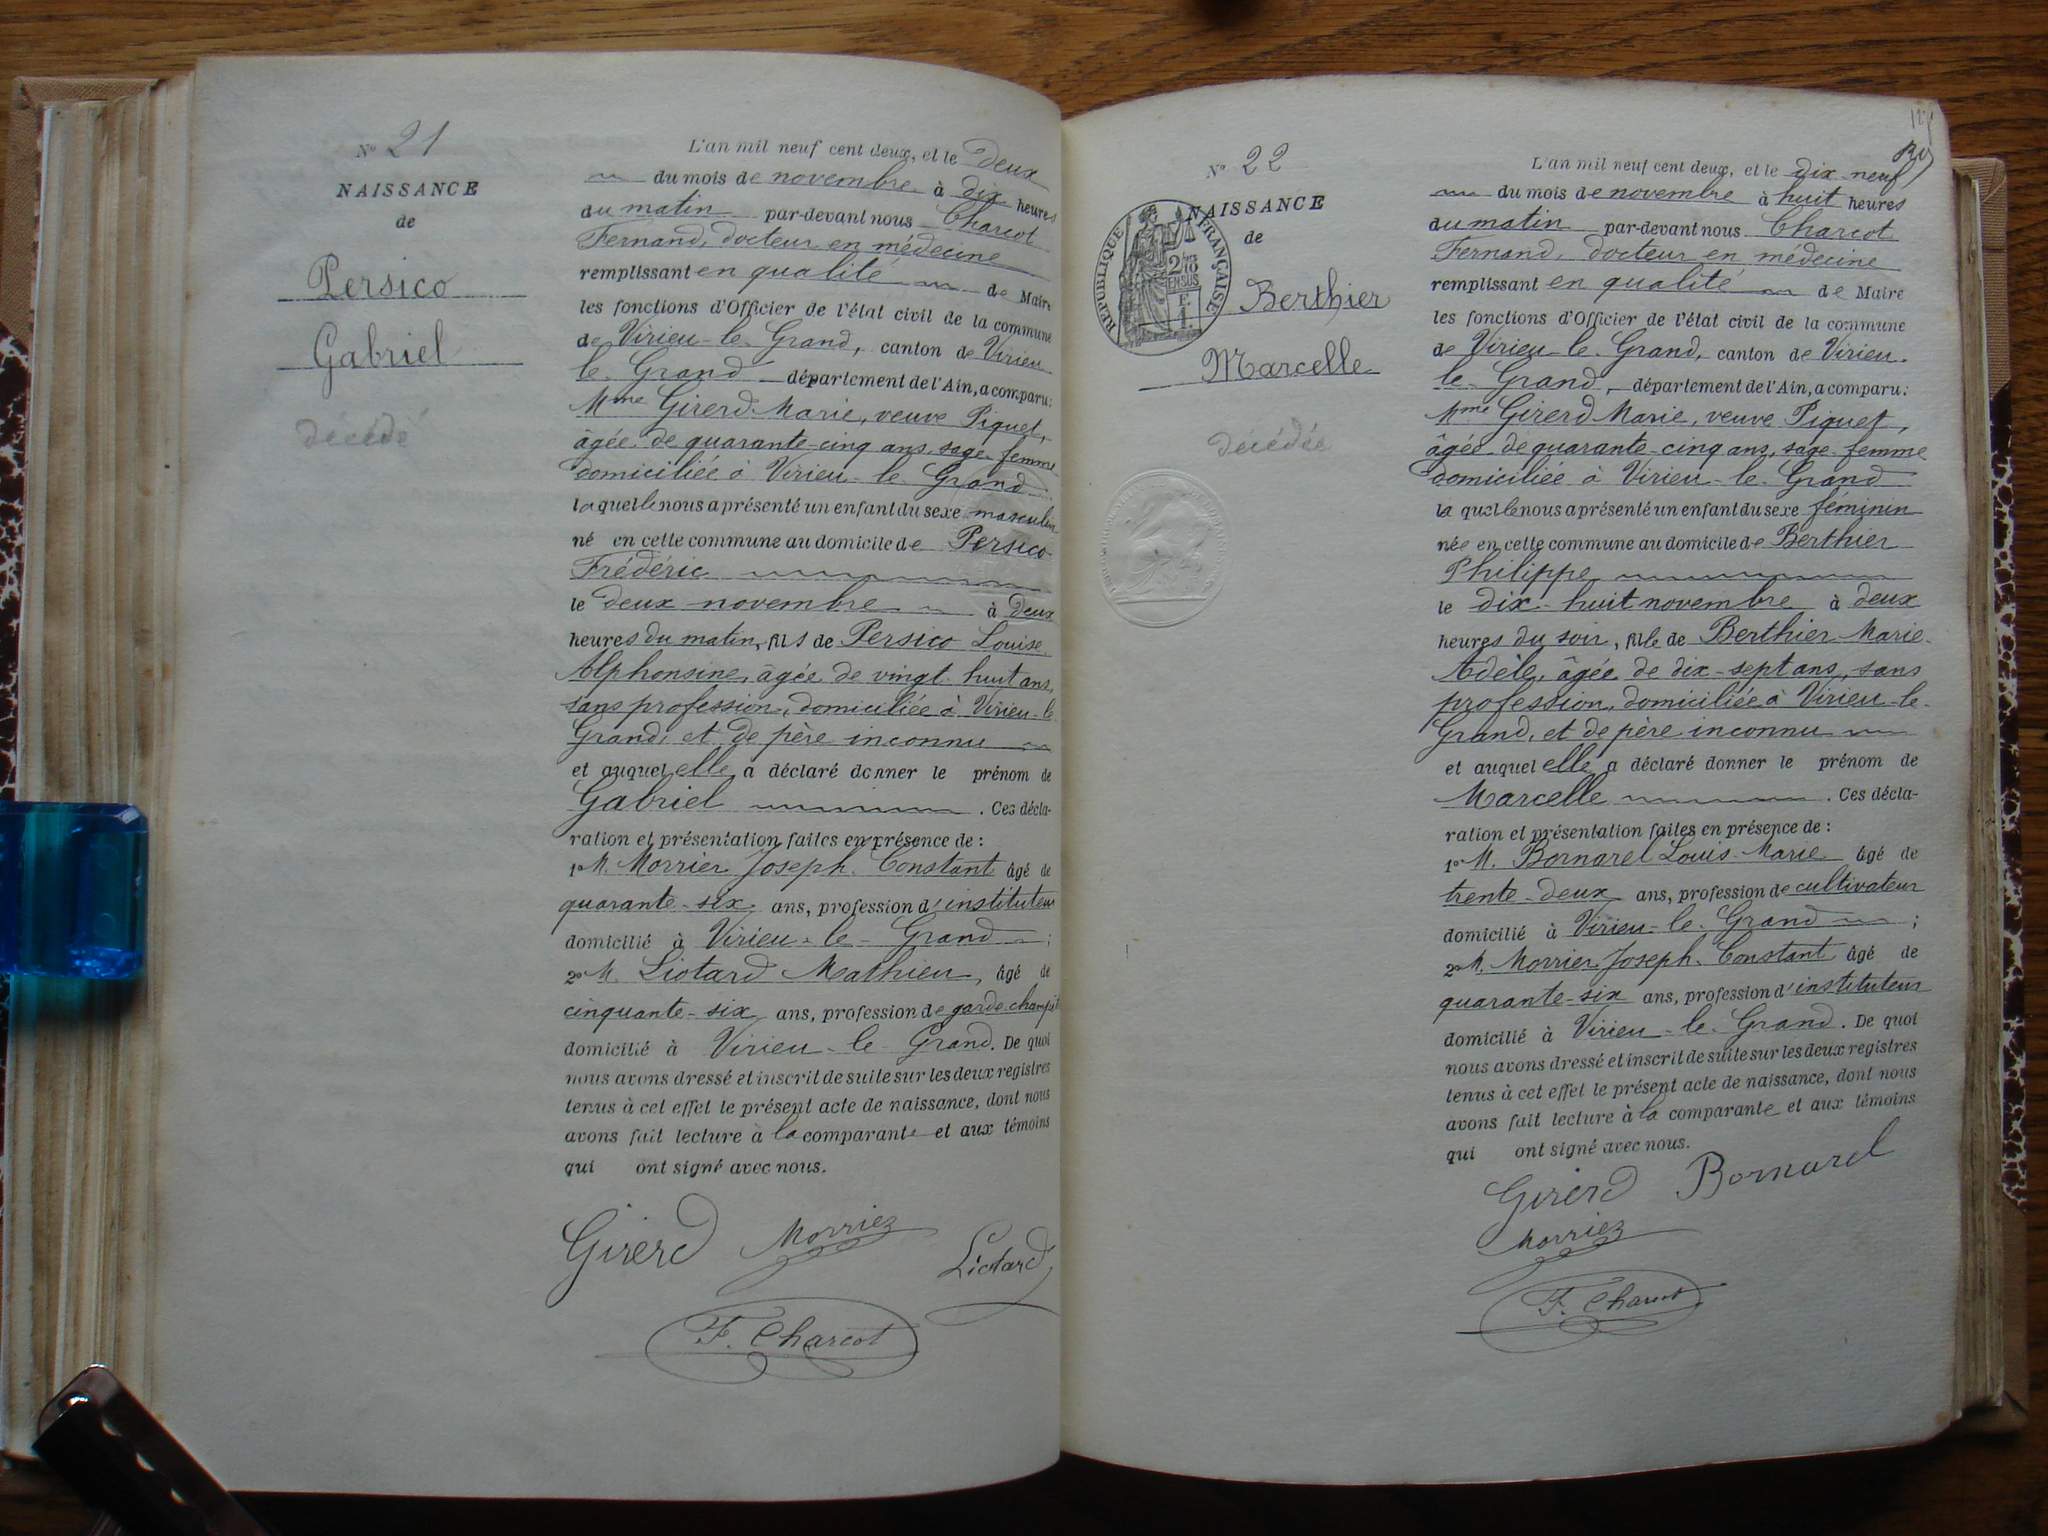 Nº 21
NAISSANCE
de
Persico
Gabriel
décédé
L'an mil neuf cent deux, et le deux
du mois de novembre à dix heures
du matin par-devant nous Charcot
Fernand, docteur en médecine
remplissant en qualité de Maire
les fonctions d'Officier de l'état civil de la commune
de Virieu-le-Grand, canton de Virieu
le-Grand département de l'Ain, a comparu:
Mme Girerd Marie, veuve Piquet,
âgée de quarante-cinq ans, sage-femme
domiciliée à Virieu-le-Grand
laquelle nous a présenté un enfant du sexe masculin
né en cette commune au domicile de Persico
Frédéric
le deux novembre à deux
heures du matin, fils de Persico Louise
Alphonsine, âgée de vingt-huit ans,
sans profession, domiciliée à Virieu-le-
Grand, et de père inconnu
et auquel elle a déclaré donner le prénom de
Gabriel. Ces décla-
ration et présentation faites en présence de :
1º M. Morrier Joseph-Constant âgé de
quarante-six ans, profession d'instituteur
domicilié à Virieu-le-Grand ;
2º M. Liotard Mathieu, âgé de
cinquante-six ans, profession de garde-champêt
domicilié à Virieu-le-Grand. De quoi
nous avons dressé et inscrit de suite sur les deux registres
tenus à cet effet le présent acte de naissance, dont nous
avons fait lecture à la comparante et aux témoins
qui ont signé avec nous.
Girerd Morriez Liotard
F. Charcot
Nº 22
NAISSANCE
de
RÉPUBLIQUE FRANÇAISE
2/10
EN SUS
Berthier
Marcelle
décédée
L'an mil neuf cent deux, et le dix-neuf
du mois de novembre à huit heures
du matin par-devant nous Charcot
Fernand, docteur en médecine
remplissant en qualité de Maire
les fonctions d'Officier de l'état civil de la commune
de Virieu-le-Grand, canton de Virieu-
le-Grand, département de l'Ain, a comparu:
Mme Girerd Marie, veuve Piquet,
âgée de quarante-cinq ans, sage-femme
domiciliée à Virieu-le-Grand
laquelle nous a présenté un enfant du sexe féminin
née en cette commune au domicile de Berthier
Philippe
le dix-huit novembre à deux
heures du soir, fille de Berthier Marie-
Adèle, âgée de dix-sept ans, sans
profession, domiciliée à Virieu-le-
Grand, et de père inconnu
et auquel elle a déclaré donner le prénom de
Marcelle. Ces décla-
ration et présentation faites en présence de :
1º M. Bornarel Louis-Marie âgé de
trente-deux ans, profession de cultivateur
domicilié à Virieu-le-Grand ;
2º M. Morrier Joseph-Constant âgé de
quarante-six ans, profession d'instituteur
domicilié à Virieu-le-Grand. De quoi
nous avons dressé et inscrit de suite sur les deux registres
tenus à cet effet le présent acte de naissance, dont nous
avons fait lecture à la comparante et aux témoins
qui ont signé avec nous.
Girerd Bornarel
Morriez
F. Charcot